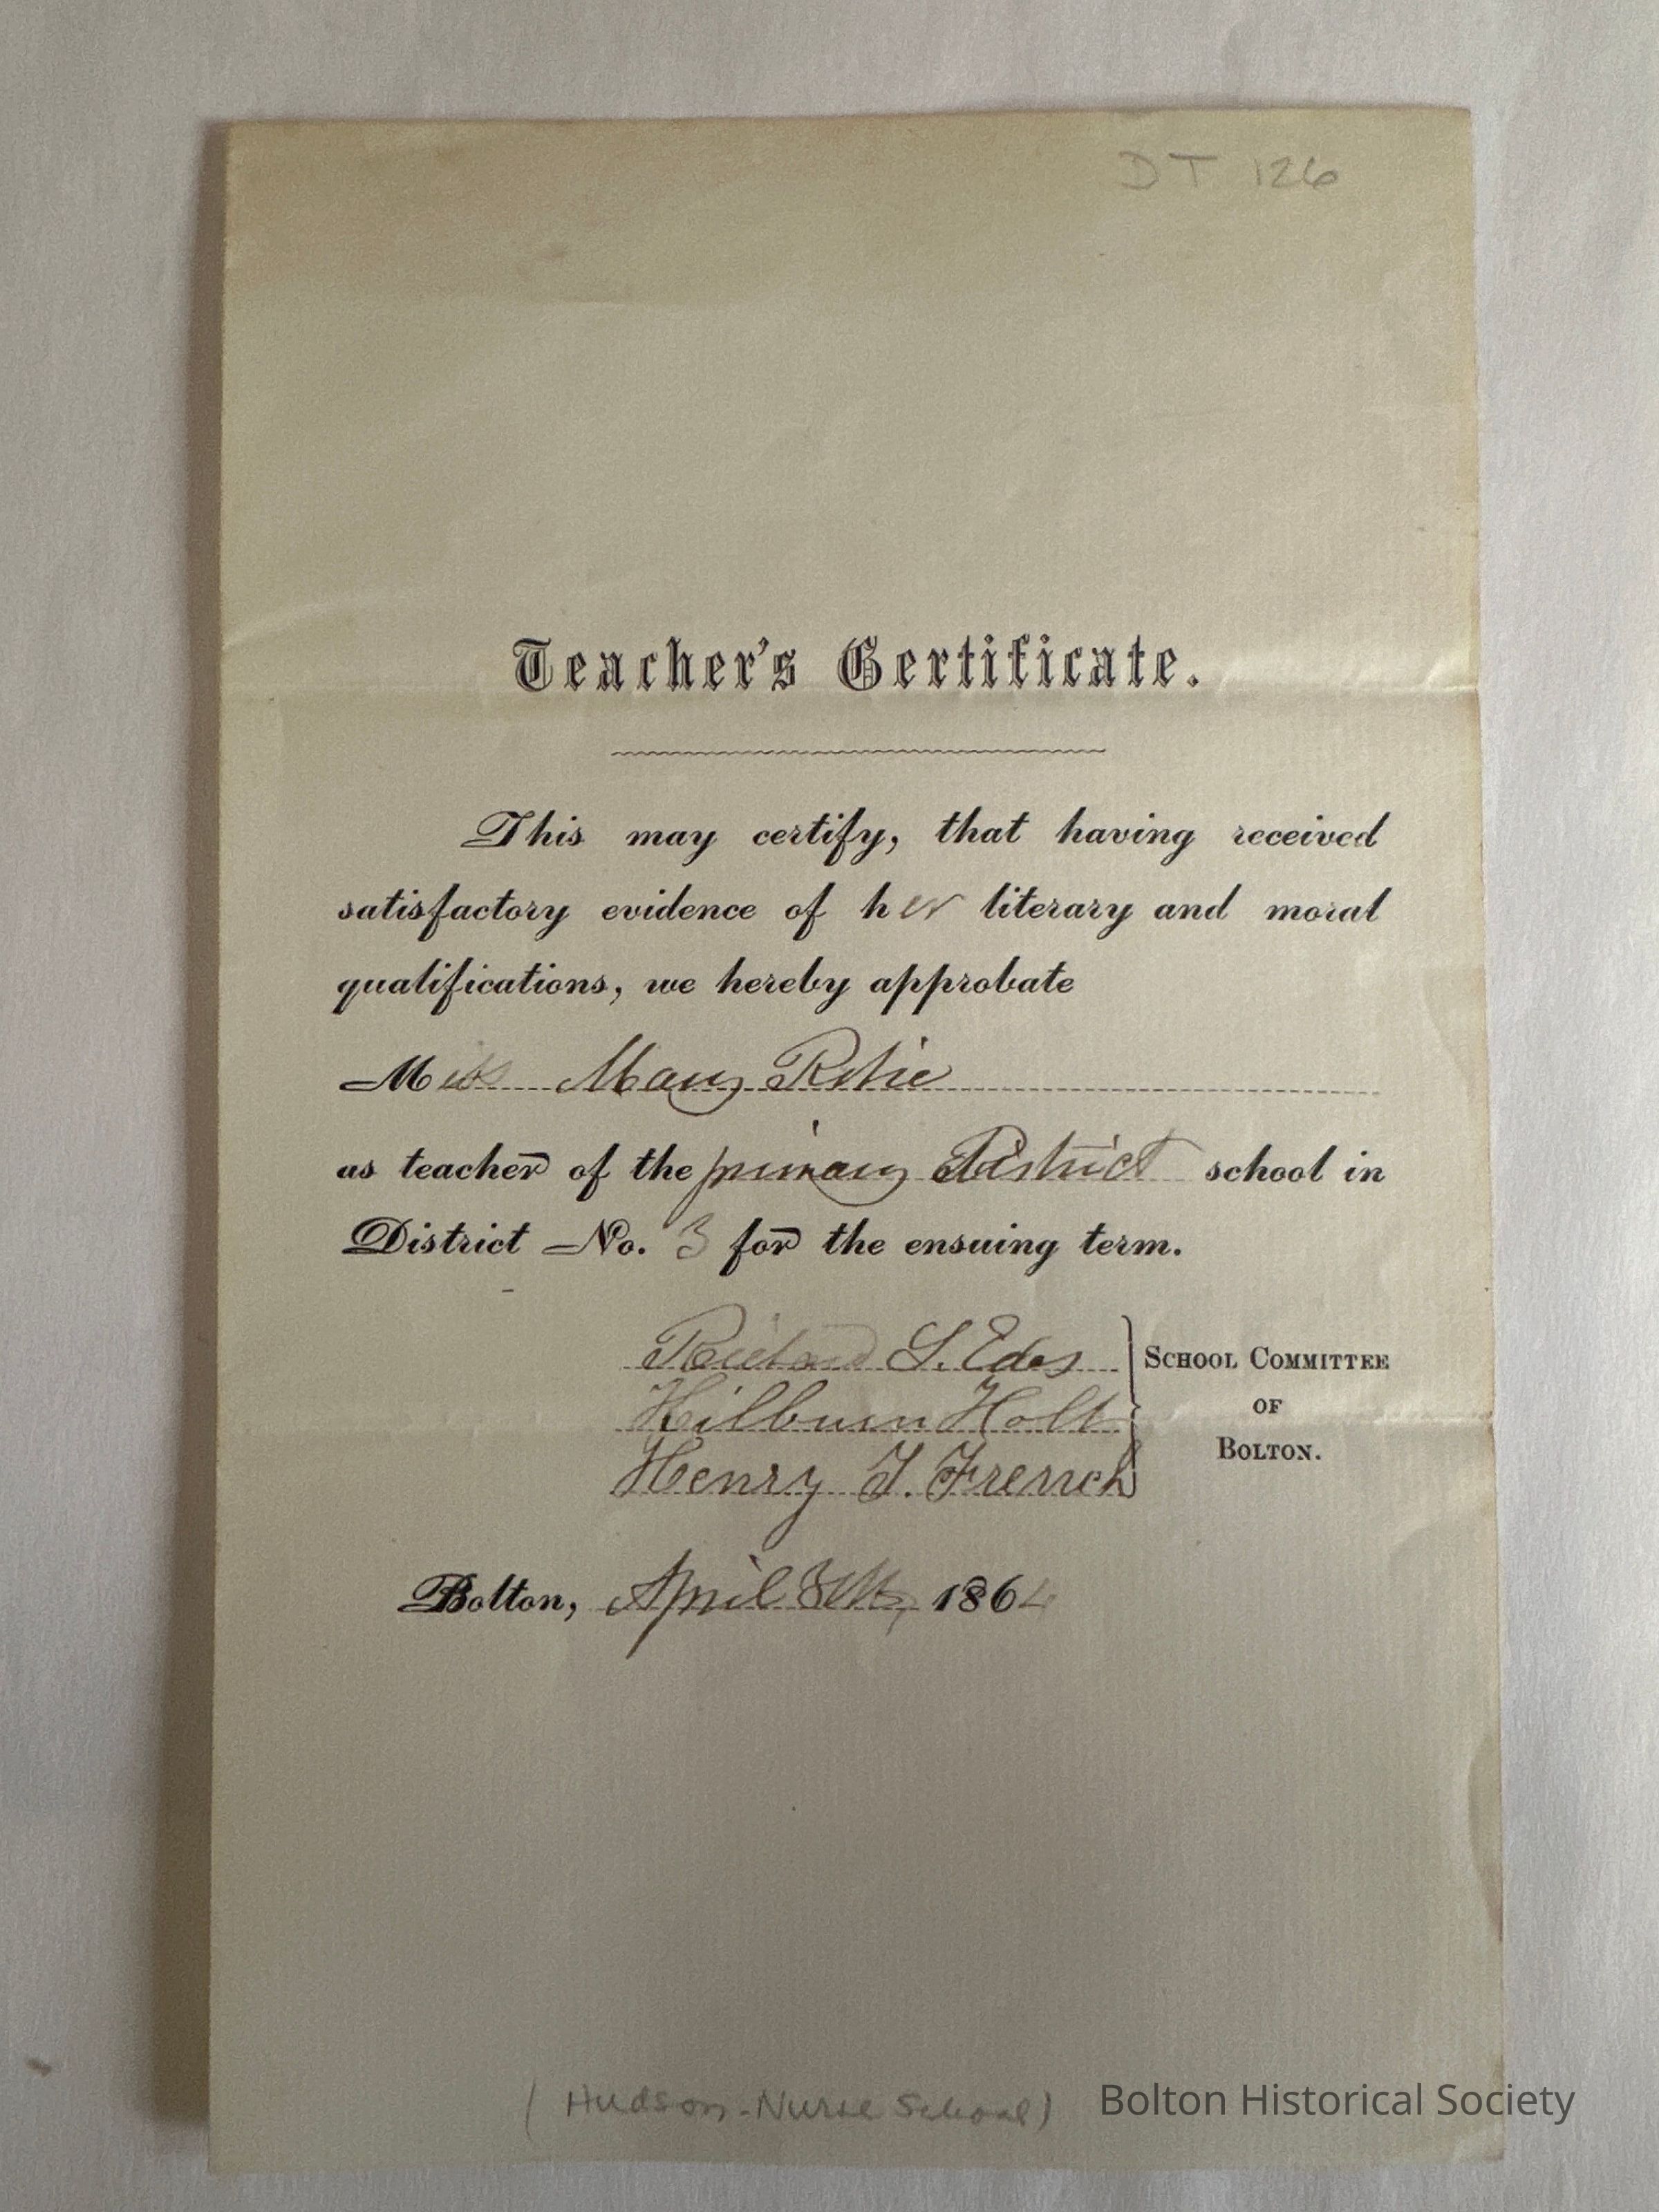 DT 126
Teacher's Certificate.
This may certify, that having received
satisfactory evidence of her literary and moral
qualifications, we hereby approbate
Miss Mary
as teacher of the primary District school in
District No. 3 for the ensuing term.
Richard S. Edes
Hilburn Holt
Henry T. French
School Committee
of
Bolton.
Bolton, April 186
(Hudson-Nurse School)
Bolton Historical Society